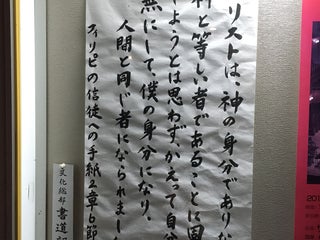 リストは、神の身分でありな
神と等しい者であることに固
しようとは思わず、かえって自分
無にして、僕の身分になり、
人間と同じ者になられまし
フィリピの信徒への手紙2章6節
文化総部 書道
201